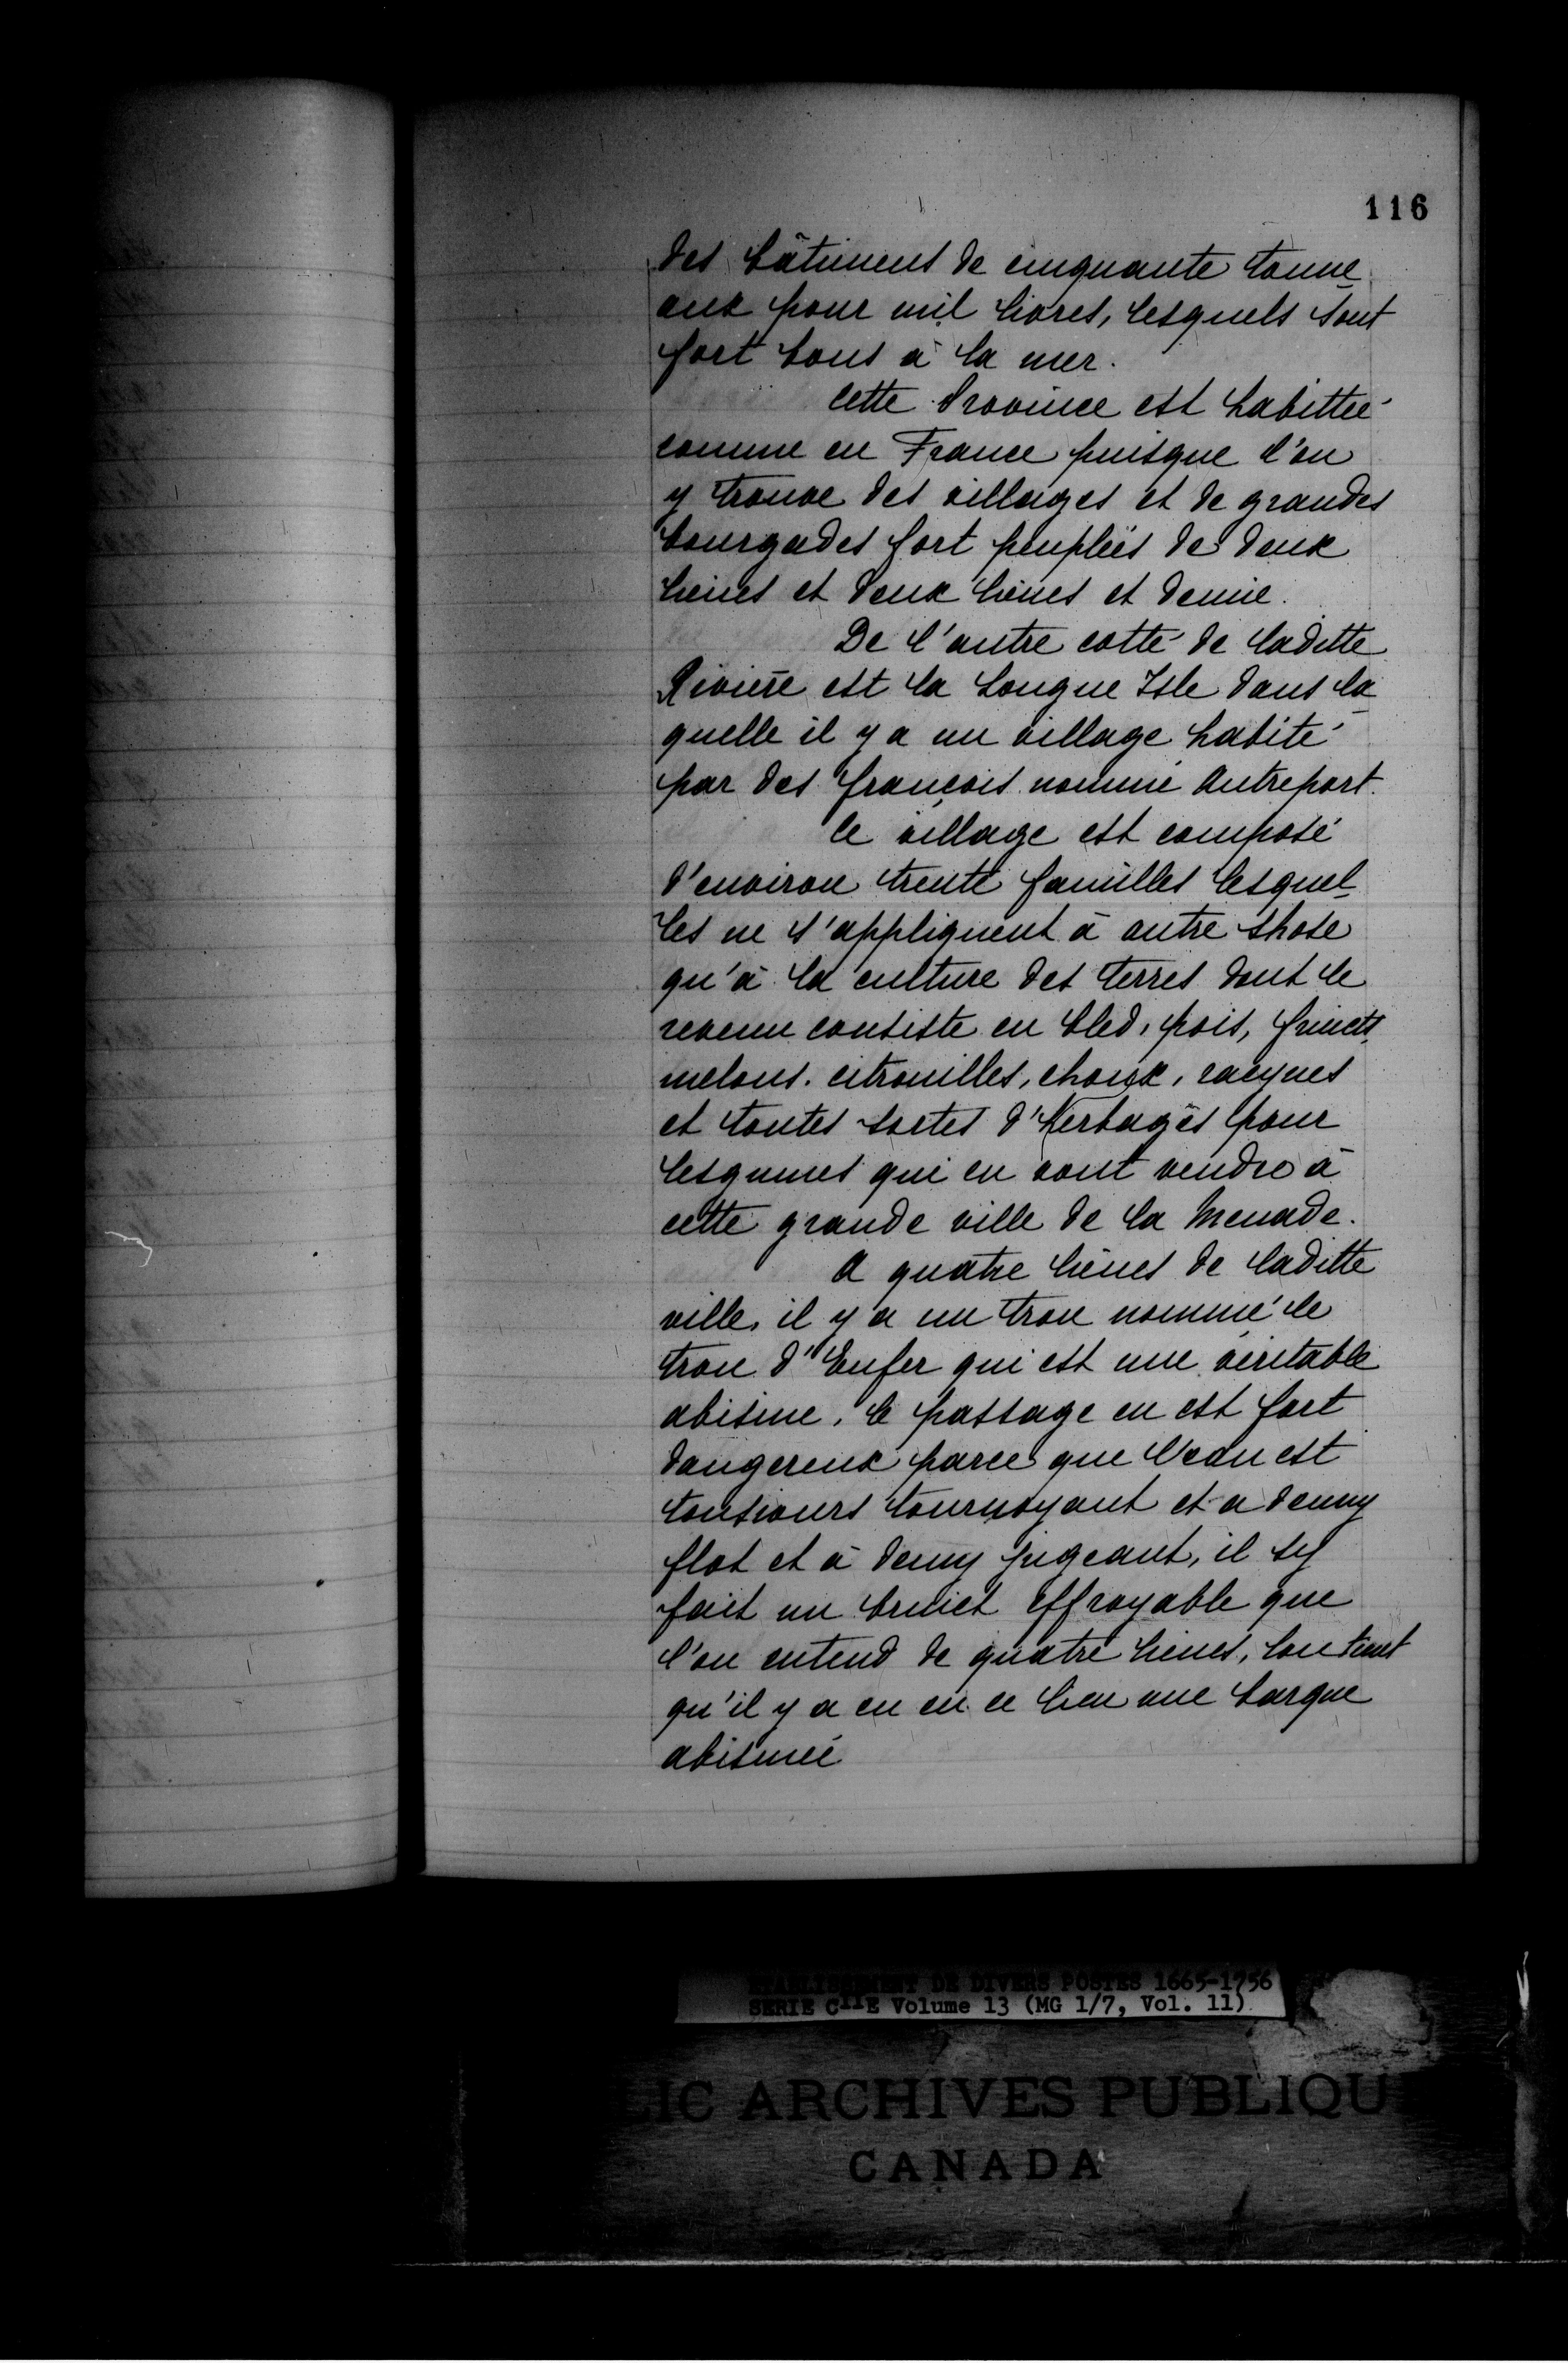 116
des bâtiments de cinquante tonne
aux pour mil livres, lesquels sont
fort bons à la mer.
Cette Province est habittée
comme en France puisque l'on
y trouve des villages et de grandes
bourgades fort peuplées de deux
lieues et deux lieues et demie.
De l'autre cotté de ladite
Rivière est la Longue Isle dans la
quelle il y a un village habité
par des françois nommé Autreport.
Ce village est composé
d'environ trente familles lesquel-
les ne s'appliquent à autre chose
qu'à la culture des terres dont le
revenu consiste en bled, pois, fruicts,
melons, citrouilles, choux, racynes
et toutes sortes d'herbages pour
lesgumes qui en vont vendre à
cette grande ville de la Menade.
A quatre lieues de laditte
ville, il y a un trou nommé le
trou d'Enfer qui est une véritable
abisme, le passage en est fort
dangereux parce que l'eau est
tousiours tournoyant et a demy
flot et à demy jugeant, il sy
fait un bruict effroyable que
l'on entend de quatre lieues, lon tient
qu'il y a eu en ce lieu une barque
abismée
ETABLISSEMENT DE DIVERS POSTES 1665-1756
SERIE C11E Volume 13 (MG 1/7, Vol. 11)
LIC ARCHIVES PUBLIQU
CANADA